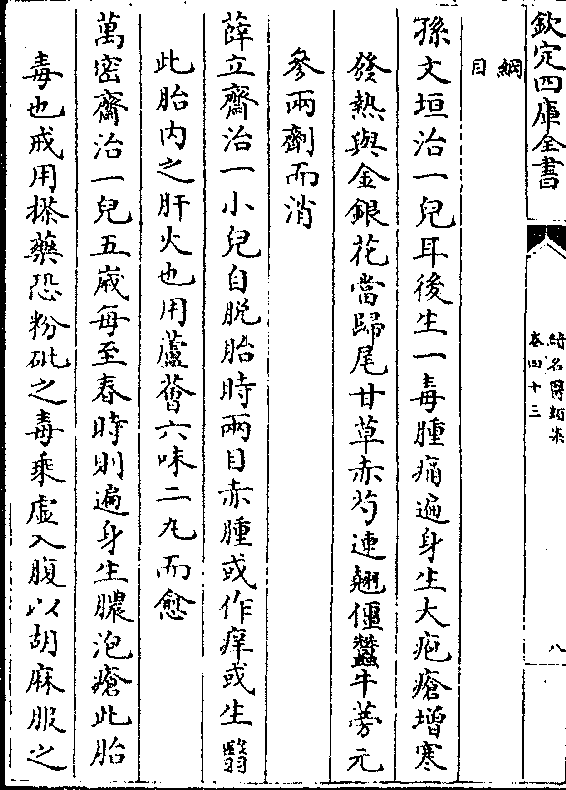 欽定四庫全書
續名醫類案
卷四十三
八
綱
目
孫文垣治一兒耳後生一毒腫痛遍身生大疱瘡增寒
發熱與金銀花當歸尾甘草赤芍連翹僵蠶牛蒡元
參兩劑而消
薛立齋治一小兒自脫胎時兩目赤腫或作痒或生翳
此胎內之肝火也用蘆薈六味二丸而愈
萬密齋治一兒五歲每至春時則遍身生膿泡瘡此胎
毒也戒用搽藥恐粉砒之毒乘虛入腹以胡麻服之